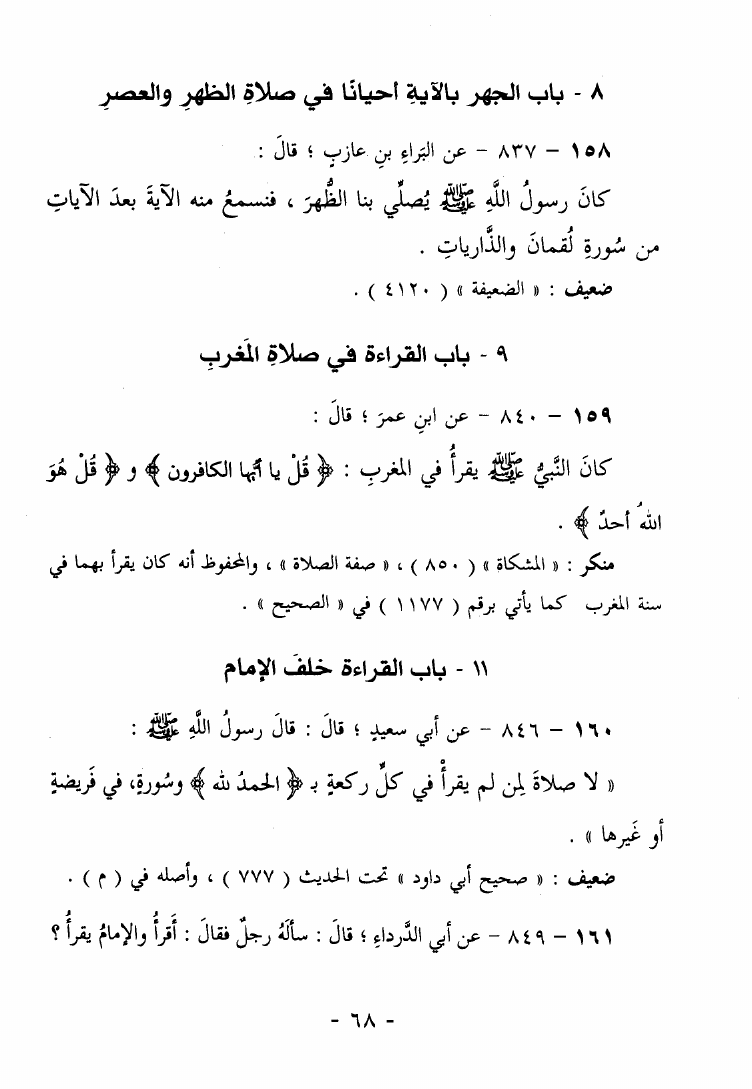 ٨ - باب الجهر بالآيةِ أحيانًا في صلاةِ الظهرِ والعصرِ
١٥٨ – ٨٣٧ – عن البَراءِ بنِ عازبٍ ؛ قالَ :
كانَ رسولُ اللَّهِ ﷺ يُصلِّي بنا الظُّهرَ ، فنسمعُ منه الآيةَ بعدَ الآياتِ
من سُورةِ لُقمانَ والذَّارياتِ .
ضعيف : « الضعيفة » ( ٤١٢٠ ) .
٩ - باب القراءة في صلاةِ المَغربِ
١٥٩ – ٨٤٠ – عن ابنِ عمرَ ؛ قالَ :
كانَ النَّبيُّ ﷺ يقرأُ في المغربِ : ﴿ قُلْ يا أيُّها الكافرون ﴾ و ﴿ قُلْ هُوَ
اللهُ أحدٌ ﴾ .
منكر : « المشكاة » ( ٨٥٠ ) ، « صفة الصلاة » ، والمحفوظ أنه كان يقرأ بهما في
سنة المغرب كما يأتي برقم ( ١١٧٧ ) في « الصحيح » .
١١ - باب القراءة خلفَ الإمام
١٦٠ – ٨٤٦ – عن أبي سعيدٍ ؛ قالَ : قالَ رسولُ اللَّهِ ﷺ :
« لا صلاةَ لِمن لم يقرأْ في كلِّ ركعةٍ بـ ﴿ الحمدُ لله ﴾ وسُورةٍ، في فَريضةٍ
أو غَيرها » .
ضعيف : « صحيح أبي داود » تحت الحديث ( ٧٧٧ ) ، وأصله في ( م ) .
١٦١ – ٨٤٩ – عن أبي الدَّرداءِ ؛ قالَ : سألَهُ رجلٌ فقالَ : أَقرأُ والإمامُ يقرأُ ؟
- ٦٨ -